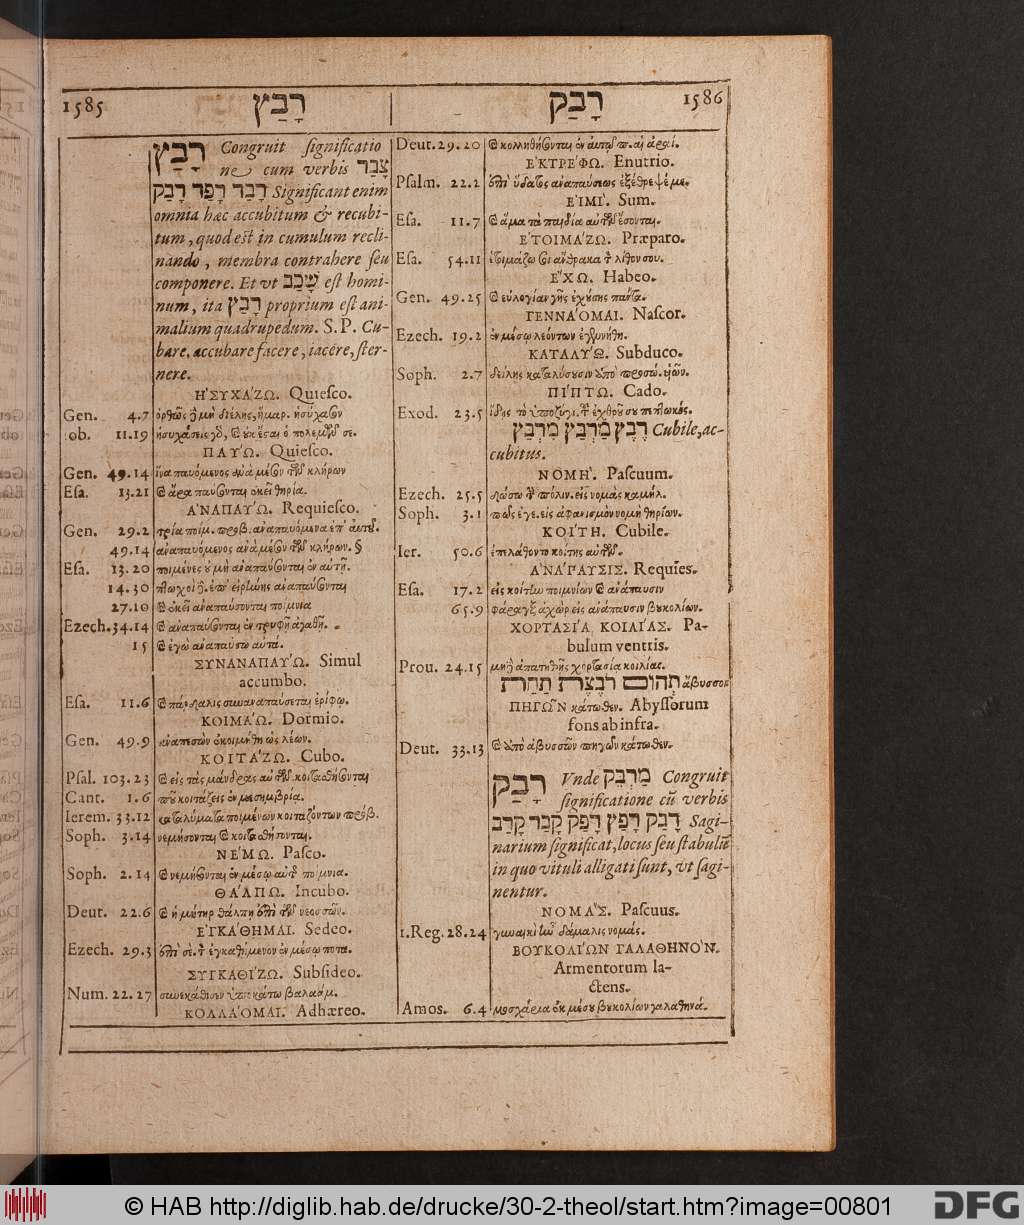 1585 רָבַץ
רָבַק 1586
רָבַץ Congruit significatio
ne cum verbis צָבַר
דָבַר רָפַד רָבַק Significant enim
omnia hæc accubitum & recubi-
tum, quod est in cumulum recli-
nando, membra contrahere seu
componere. Et vt שָׁכַב est homi-
num, ita רָבַץ proprium est ani-
malium quadrupedum. S. P. Cu-
bare, accubare facere, iacere, ster-
nere.
ἩΣΥΧΆΖΩ. Quiesco.
Gen. 4.7
ob. 11.19
ΠΑΎΩ. Quiesco.
Gen. 49.14
Esa. 13.21
ἈΝΑΠΑΎΩ. Requiesco.
Gen. 29.2
49.14 ἀναπαυόμενος ἀνὰ μέσον τῶν κλήρων. §
Esa. 13.20 ποιμένες οὐ μὴ ἀναπαύσονται ἐν αὐτῇ.
14.30
27.10 καὶ ἐκεῖ ἀναπαύσονται ποίμνια
Ezech. 34.14 καὶ ἀναπαύσονται ἐν τρυφῇ ἀγαθῇ.
15 καὶ ἐγὼ ἀναπαύσω αὐτά.
ΣΥΝΑΝΑΠΑΎΩ. Simul
accumbo.
Esa. 11.6 καὶ πάρδαλις συναναπαύσεται ἐρίφῳ.
ΚΟΙΜΆΩ. Dormio.
Gen. 49.9 ἀναπεσὼν ἐκοιμήθη ὡς λέων.
ΚΟΙΤΆΖΩ. Cubo.
Psal. 103.23 καὶ εἰς τὰς μάνδρας αὐτῶν κοιτασθήσονται
Cant. 1.6 ποῦ κοιτάζεις ἐν μεσημβρίᾳ.
Ierem. 33.12 καταλύματα ποιμένων κοιταζόντων πρόβ.
Soph. 3.14 νεμήσονται καὶ κοιτασθήσονται.
ΝΈΜΩ. Pasco.
Soph. 2.14 καὶ νεμήσονται ἐν μέσῳ αὐτῆς ποίμνια.
ΘΆΛΠΩ. Incubo.
Deut. 22.6 καὶ ἡ μήτηρ θάλπῃ ἐπὶ τῶν νεοσσῶν.
ἘΓΚΆΘΗΜΑΙ. Sedeo.
Ezech. 29.3 ἐπὶ σὲ τὸν ἐγκαθήμενον ἐν μέσῳ ποτα.
ΣΥΓΚΑΘΊΖΩ. Subsideo.
Num. 22.27 συνεκάθισεν ὑποκάτω βαλαάμ.
ΚΟΛΛΆΟΜΑΙ. Adhæreo.
Deut. 29.20 καὶ κολληθήσονται ἐν αὐτῷ π. αἱ ἀραί.
ἘΚΤΡΈΦΩ. Enutrio.
Psalm. 22.2 ἐπὶ ὕδατος ἀναπαύσεως ἐξέθρεψέ με.
ΕἸΜΊ. Sum.
Esa. 11.7 καὶ ἅμα τὰ παιδία αὐτῶν ἔσονται.
ἙΤΟΙΜΆΖΩ. Præparo.
Esa. 54.11 ἑτοιμάζω σοι ἄνθρακα τὸν λίθον σου.
ἜΧΩ. Habeo.
Gen. 49.25 καὶ εὐλογίαν γῆς ἐχούσης πάντα.
ΓΕΝΝΆΟΜΑΙ. Nascor.
Ezech. 19.2 ἐν μέσῳ λεόντων ἐγεννήθη.
ΚΑΤΑΛΎΩ. Subduco.
Soph. 2.7
ΠΊΠΤΩ. Cado.
Exod. 23.5
רֶבֶץ מַרְבֵּץ מִרְבַּץ Cubile, ac-
cubitus.
ΝΟΜΉ. Pascuum.
Ezech. 25.5
Soph. 3.1
ΚΟΊΤΗ. Cubile.
Ier. 50.6 ἐπελάθοντο κοίτης αὐτῶν.
ἈΝΆΠΑΥΣΙΣ. Requies.
Esa. 17.2 εἰς κοίτην ποιμνίων καὶ ἀνάπαυσιν
65.9 φάραγξ ἀχὼρ εἰς ἀνάπαυσιν βουκολίων.
ΧΟΡΤΑΣΊΑ ΚΟΙΛΊΑΣ. Pa-
bulum ventris.
Prou. 24.15
תְּהוֹם רֹבֶצֶת תָּחַת ἄβυσσος
ΠΗΓΩ͂Ν κάτωθεν. Abyssorum
fons ab infra.
Deut. 33.13 καὶ ὑπὸ ἀβύσσων πηγῶν κάτωθεν.
רָבַק Vnde מַרְבֵּק Congruit
significatione cũ verbis
דָבַק רָפַץ דָפַק קָבַר קָרַב Sagi-
narium significat, locus seu stabulũ
in quo vituli alligati sunt, vt sagi-
nentur.
ΝΟΜΆΣ. Pascuus.
1.Reg. 28.24
ΒΟΥΚΟΛΊΩΝ ΓΑΛΑΘΗΝΌΝ.
Armentorum la-
ctens.
Amos. 6.4 μοσχάρια ἐκ μέσου βουκολίων γαλαθηνά.
© HAB http://diglib.hab.de/drucke/30-2-theol/start.htm?image=00801
DFG